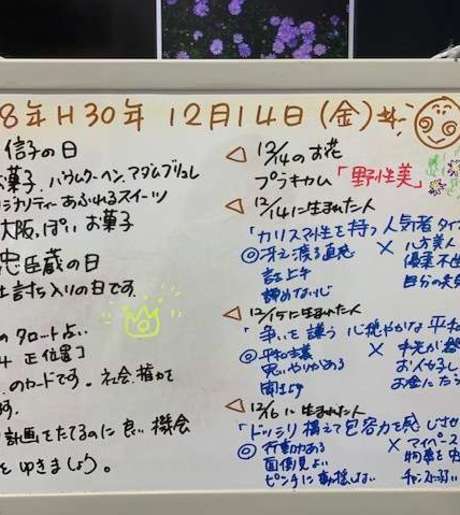 8年 H30年 12月14日(金)
信子の日
お菓子、バウムクーヘン、マダムブリュレ
ナリティーあふれるスイーツ
大阪っぽい お菓子
忠臣蔵の日
討ち入りの日です。
のタロートよい
4 正位置]
のカードです。社会、権力で
す。
計画をたてるのに 良い 機会
を ゆきましょう。
◁ 12/14のお花
ブラキカム「野性美」
◁ 12/14に生まれた人
「カリスマ性を持つ 人気者タイ
◎ 冴え渡る直感 × 八方美人
話上手 優柔不
諦めない心 自分の失
◁ 12/15に生まれた人
「争いを嫌う 心穏やかな平和
◎ 平和主義 ×
思いやりがある お人好し
聞き上手 お金にだら
◁ 12/16に生まれた人
「ドッシリ構えて包容力を感じさせ
◎ 行動力ある × マイペース
面倒見よい 物事を
ピンチに動揺しない チャンスに弱い